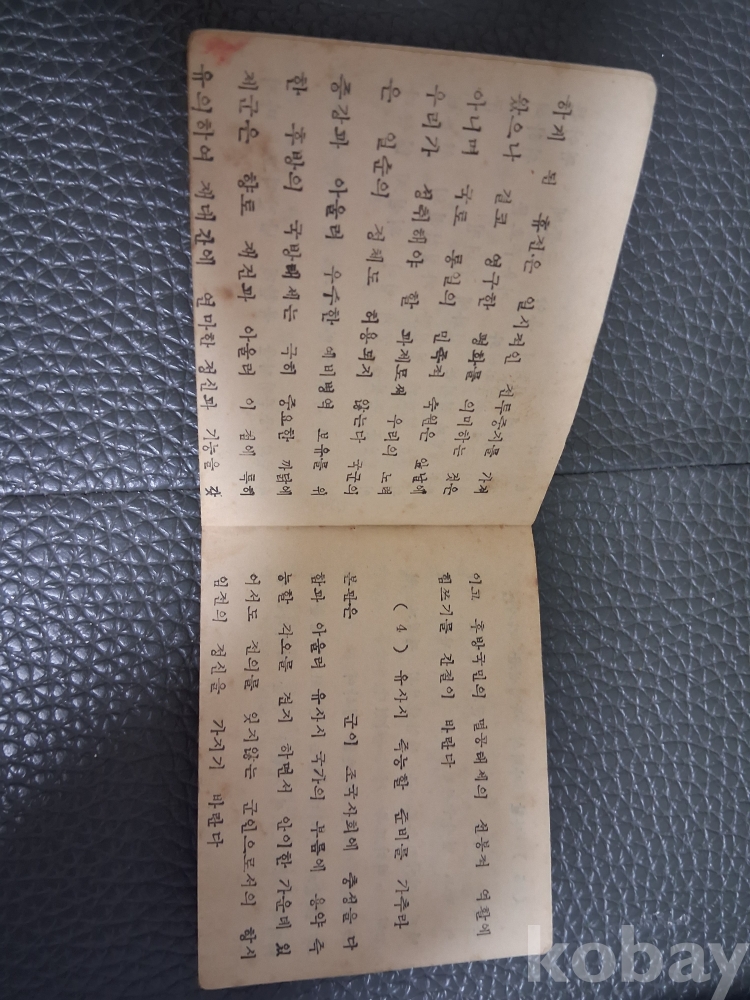 하게 된 휴전은 일시적인 전투중지를 가져
왔으나 결코 영구한 평화를 의미하는 것은
아니며 국토 통일의 민족적 숙원은 앞날에
우리가 성취해야 할 과제로써 우리의 노력
은 일순의 정체도 허용되지 않는다 국군의
증강과 아울러 우수한 예비병의 보유를 위
한 후방의 국방태세는 극히 중요한 까닭에
제군은 향토 재건과 아울러 이 점에 특히
유의하여 재대간에 연마한 정신과 기능을 갖
이고 후방국민의 멸공태세의 선봉적 역활에
힘쓰기를 간절이 바란다
(4) 유사시 즉능할 준비를 가추라
본관은 군이 조국사회에 충성을 다
함과 아울러 유사시 국가의 부름에 용약 즉
능할 각오를 견지 하면서 안이한 가운데 있
어서도 전의를 잊지않는 군인으로서의 항시
임전의 정신을 가지기 바란다
kobay